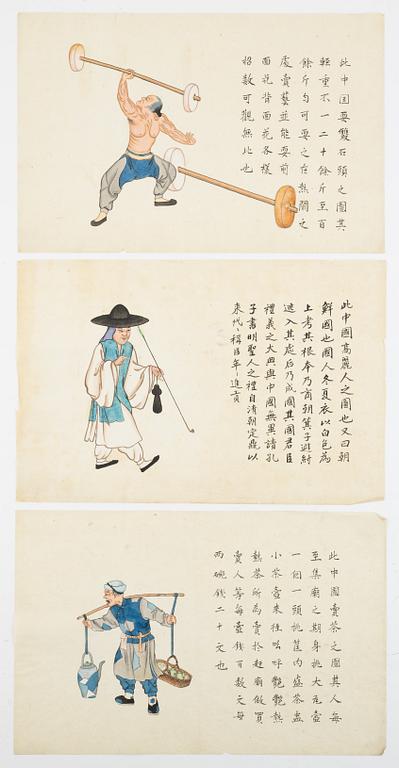 此中国耍雙石頭之圖其
輕重不一二十餘斤至百
餘斤均可耍之在熱鬧之
處賣藝並能耍前
面花背面花各樣
招数可觀無比也
此中國高麗人之圖也又曰朝
鮮國也國人冬夏衣以白色為
上考其根本乃商朝箕子避紂
逃入其處后乃成國其國君臣
禮義之大典與中國無異請孔
子書明聖人之禮自清朝定鼎以
來代〻稱臣年〻進貢
此中国賣茶之圖其人每
至集廟之期身挑大瓦壺
一個一頭挑筐內盛茶盅
小茶壺來往吆呼艷艷熱
熱茶所為賣於赶廟做買
賣人等每壺錢百數文每
两碗錢二十文也